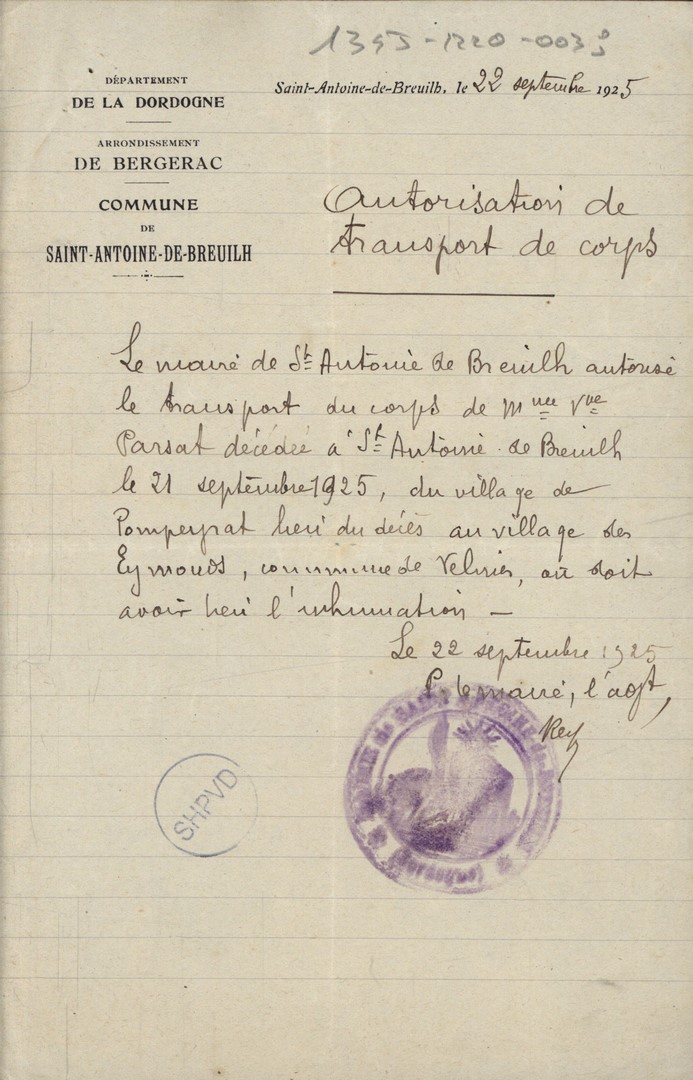 DÉPARTEMENT
DE LA DORDOGNE
ARRONDISSEMENT
DE BERGERAC
COMMUNE
DE
SAINT-ANTOINE-DE-BREUILH
Saint-Antoine-de-Breuilh, le 22 septembre 1925
Autorisation de
transport de corps
Le maire de St Antoine de Breuilh autorise
le transport du corps de Mme Vve
Parsat décédée à St Antoine de Breuilh
le 21 septembre 1925, du village de
Pompeyrat lieu du décès au village des
Eymouds, commune de Velines, où doit
avoir lieu l'inhumation —
Le 22 septembre 1925
P. le maire, l'adjt,
Rey
SHPVD
(Dordogne)